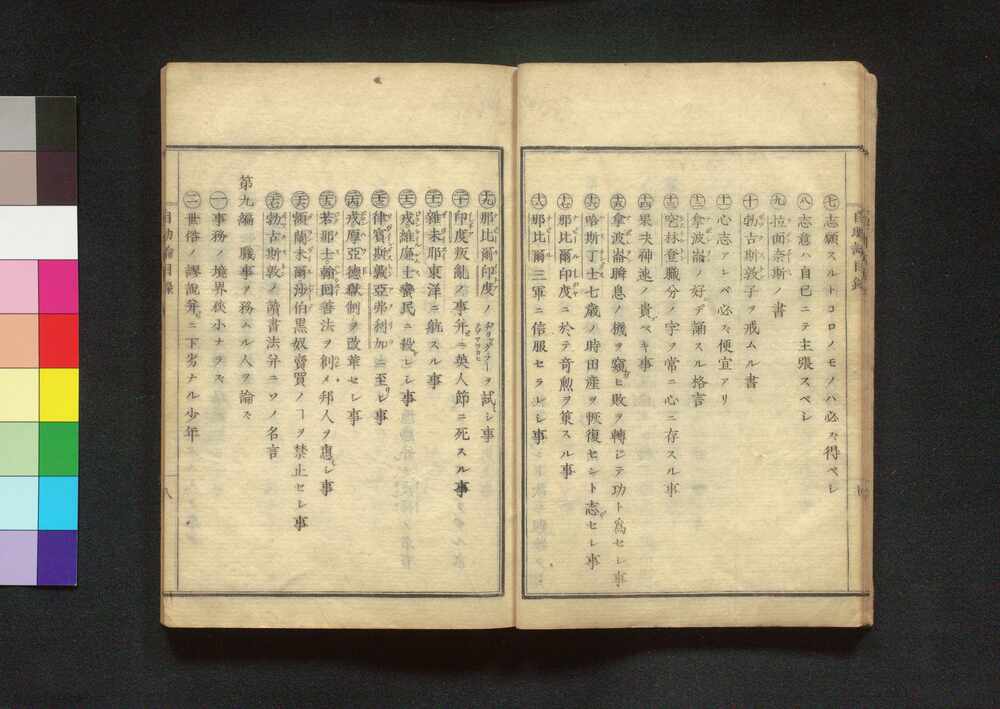 ㊆志願スルトコロノモノハ必ズ得ベシ
㊇志意ハ自己ニテ主張スベシ
㊈拉面奈斯ノ書
㊉勃古斯敦子ヲ戒ムル書
⑪心志アレバ必ズ便宜アリ
⑫拿波崙ノ好デ誦スル格言
⑬窕林登職分ノ字ヲ常ニ心ニ存スル事
⑭果決神速ノ貴ブベキ事
⑮拿波崙瞬息ノ機ヲ窺ヒ敗ヲ轉ジテ功ト為セシ事
⑯哈斯丁士七歳ノ時田産ヲ恢復セント志セシ事
⑰那比爾印度ニ於テ奇勲ヲ策スル事
⑱那比爾三軍ニ信服セラレシ事
自助論目録
⑲那比爾印度ノ
ヲ試シ事
⑳印度叛亂ノ事并ニ英人節ニ死スル事
㉑雜未耶東洋ニ航スル事
㉒戎維廉士蠻民ニ殺レシ事
㉓律賓斯敦亞弗利加ニ至シ事
㉔戎厚亞德獄制ヲ改革セシ事
㉕若那士翰回善法ヲ創メ邦人ヲ惠シ事
㉖領蘭木爾沙伯黒奴賣買ノヿヲ禁止セシ事
㉗勃古斯敦ノ讀書法并ニソノ名言
第九編 職事ヲ務ムル人ヲ論ズ
㊀事務ノ境界狹小ナラズ
㊁世俗ノ謬説并ニ下劣ナル少年
自助論目録
八